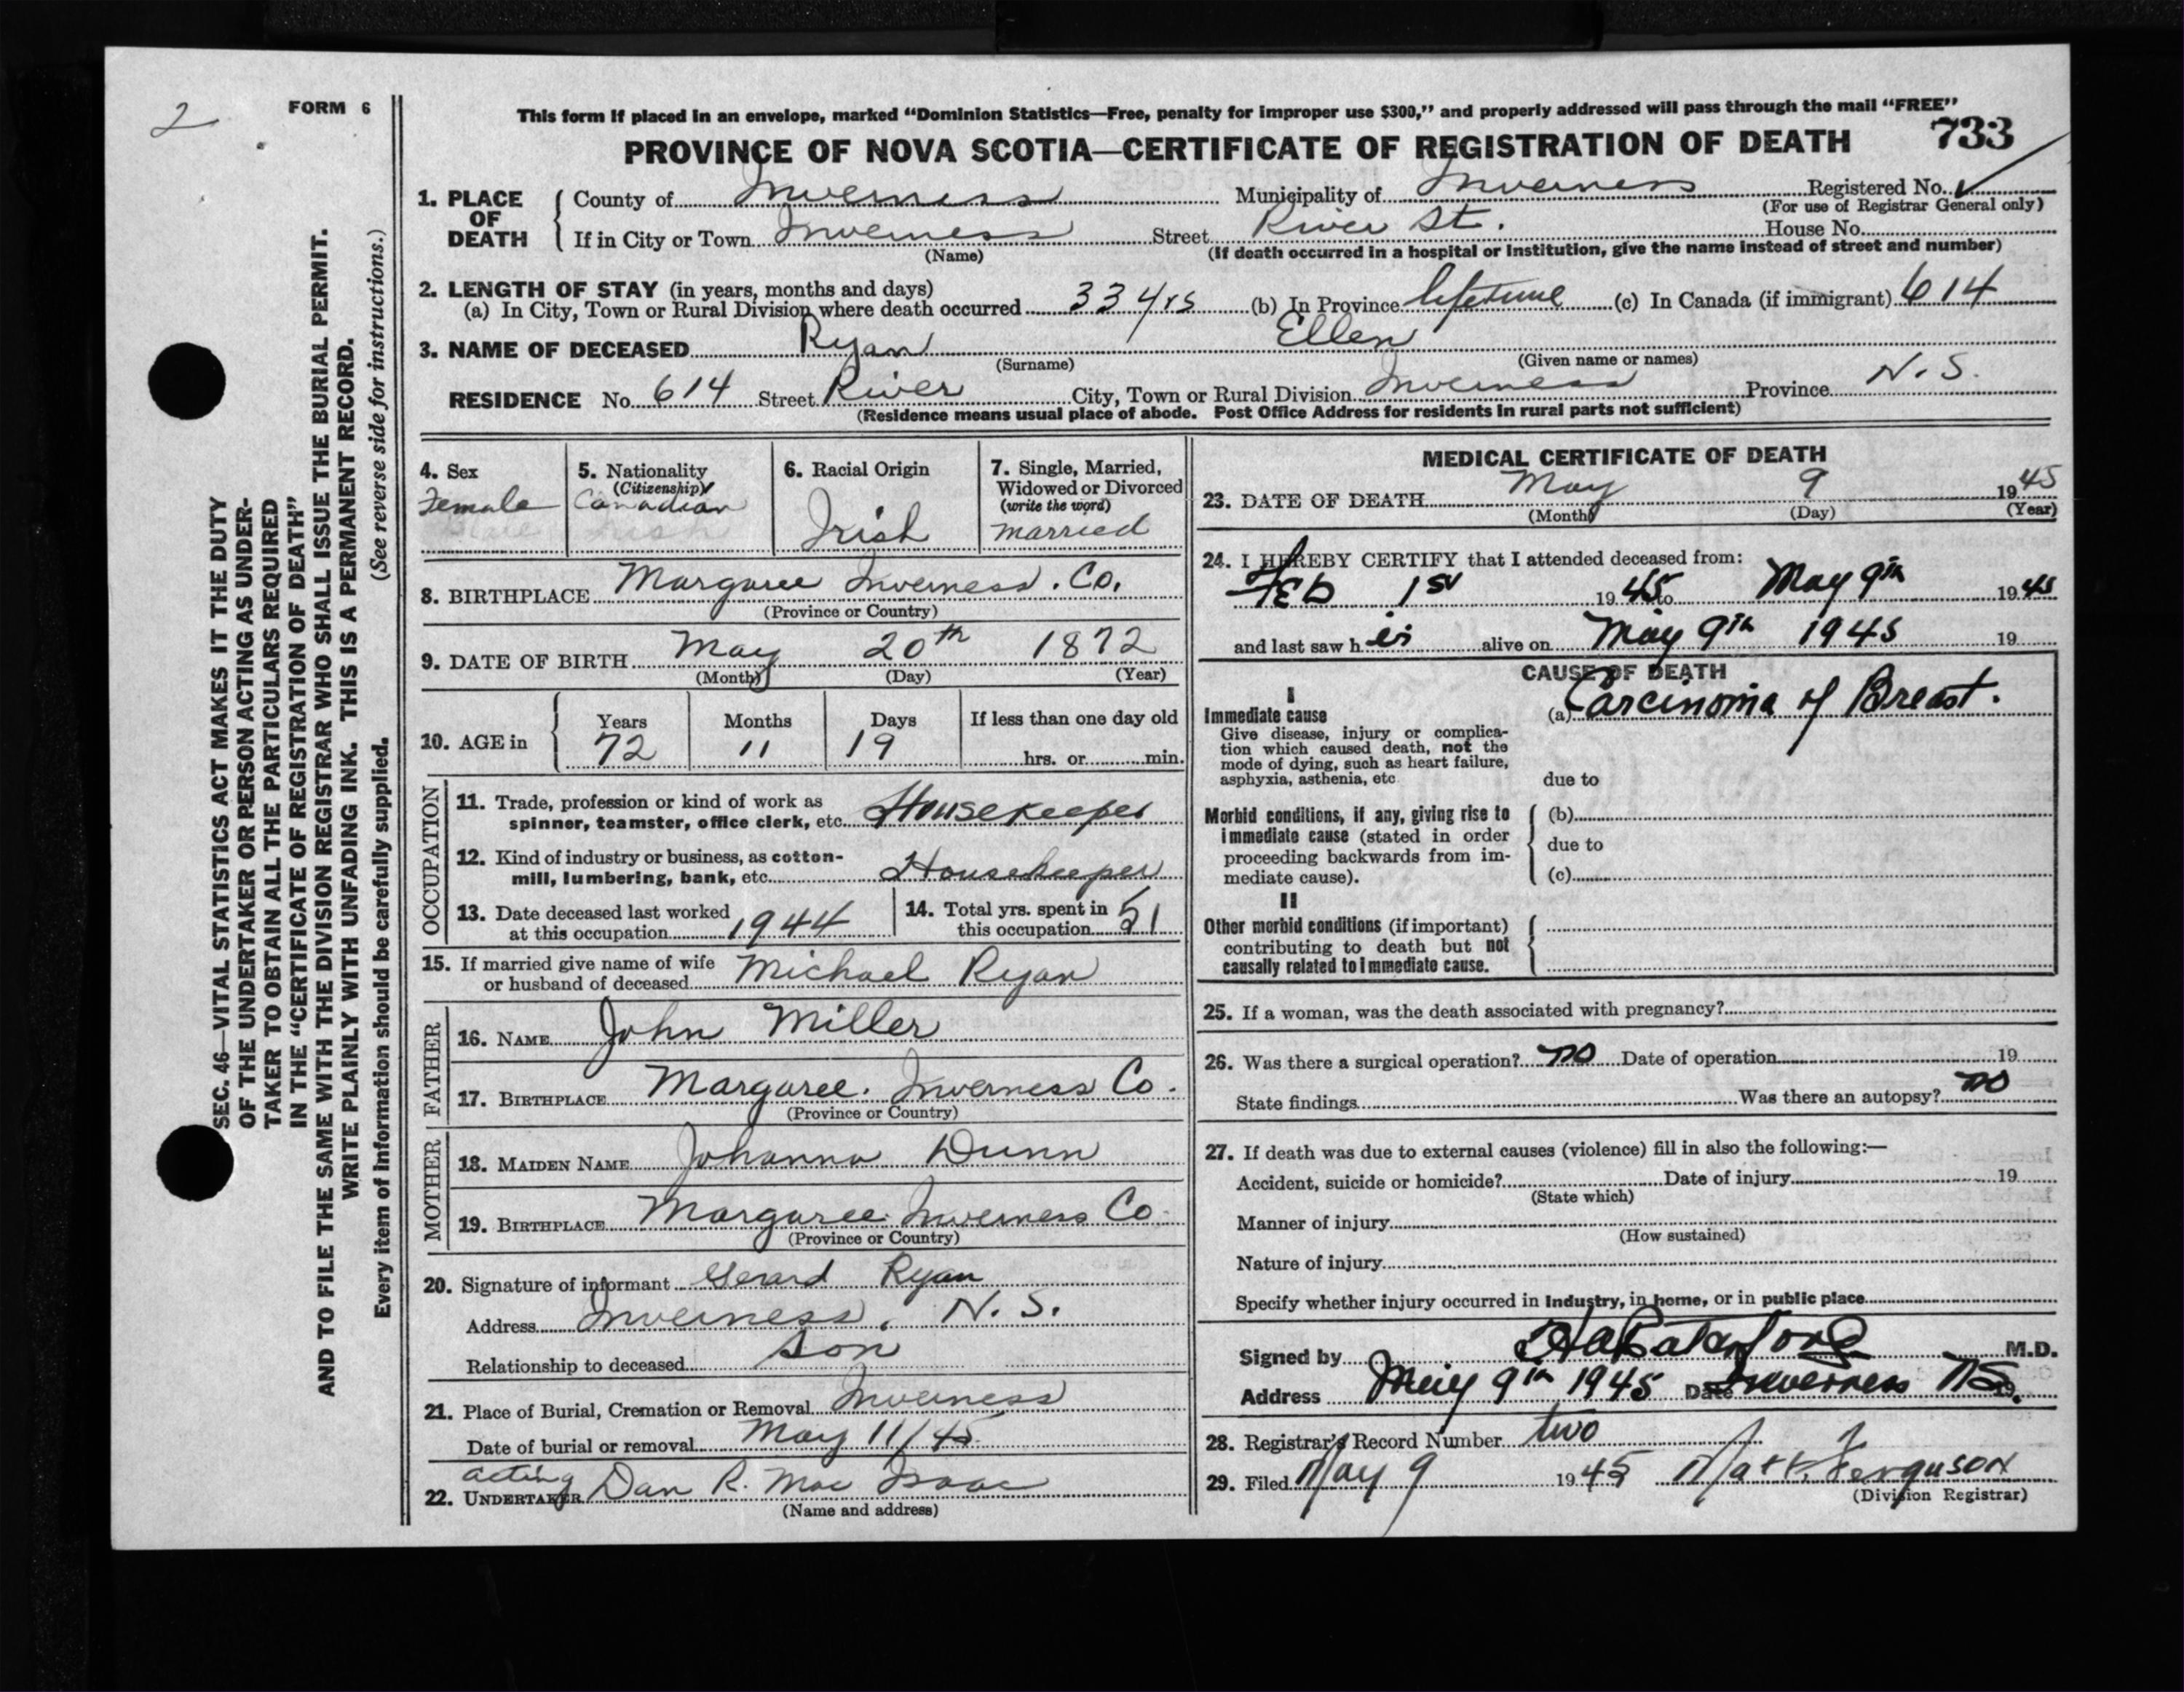 2
FORM 6
This form if placed in an envelope, marked “Dominion Statistics—Free, penalty for improper use $300,” and properly addressed will pass through the mail “FREE”
PROVINCE OF NOVA SCOTIA—CERTIFICATE OF REGISTRATION OF DEATH 733
1. PLACE OF DEATH
County of Inverness Municipality of Inverness Registered No.
(For use of Registrar General only)
If in City or Town Inverness Street River St. House No.
(Name) (If death occurred in a hospital or institution, give the name instead of street and number)
2. LENGTH OF STAY (in years, months and days)
(a) In City, Town or Rural Division where death occurred 33 yrs (b) In Province lifetime (c) In Canada (if immigrant) 614
3. NAME OF DECEASED Ryan Ellen
(Surname) (Given name or names)
RESIDENCE No. 614 Street River City, Town or Rural Division Inverness Province N.S.
(Residence means usual place of abode. Post Office Address for residents in rural parts not sufficient)
4. Sex
Female
5. Nationality
(Citizenship)
Canadian
6. Racial Origin
Irish
7. Single, Married,
Widowed or Divorced
(write the word)
married
8. BIRTHPLACE Margaree Inverness. Co.
(Province or Country)
9. DATE OF BIRTH May 20th 1872
(Month) (Day) (Year)
10. AGE in
Years Months Days If less than one day old
72 11 19 hrs. or min.
OCCUPATION
11. Trade, profession or kind of work as
spinner, teamster, office clerk, etc. Housekeeper
12. Kind of industry or business, as cotton-
mill, lumbering, bank, etc. Housekeeper
13. Date deceased last worked
at this occupation 1944
14. Total yrs. spent in
this occupation 51
15. If married give name of wife
or husband of deceased Michael Ryan
FATHER
16. NAME John Miller
17. BIRTHPLACE Margaree. Inverness Co.
(Province or Country)
MOTHER
18. MAIDEN NAME Johanna Dunn
19. BIRTHPLACE Margaree Inverness Co.
(Province or Country)
20. Signature of informant Gerard Ryan
Address Inverness, N.S.
Relationship to deceased son
21. Place of Burial, Cremation or Removal Inverness
Date of burial or removal May 11/45
acting
22. UNDERTAKER Dan R. Mac Isaac
(Name and address)
MEDICAL CERTIFICATE OF DEATH
23. DATE OF DEATH May 9 1945
(Month) (Day) (Year)
24. I HEREBY CERTIFY that I attended deceased from:
FEB 1st 1945 to May 9th 1945
and last saw her alive on May 9th 1945 19
CAUSE OF DEATH
I
Immediate cause
Give disease, injury or complica-
tion which caused death, not the
mode of dying, such as heart failure,
asphyxia, asthenia, etc
(a) Carcinoma of Breast.
due to
Morbid conditions, if any, giving rise to
immediate cause (stated in order
proceeding backwards from im-
mediate cause).
(b)
due to
(c)
II
Other morbid conditions (if important)
contributing to death but not
causally related to immediate cause.
25. If a woman, was the death associated with pregnancy?
26. Was there a surgical operation? no Date of operation 19
State findings Was there an autopsy? no
27. If death was due to external causes (violence) fill in also the following:—
Accident, suicide or homicide? Date of injury 19
(State which)
Manner of injury
(How sustained)
Nature of injury
Specify whether injury occurred in industry, in home, or in public place
Signed by M.D.
Address May 9th 1945 Date Inverness NS. 19
28. Registrar's Record Number two
29. Filed May 9 1945 Matt. Ferguson
(Division Registrar)
SEC. 46—VITAL STATISTICS ACT MAKES IT THE DUTY
OF THE UNDERTAKER OR PERSON ACTING AS UNDER-
TAKER TO OBTAIN ALL THE PARTICULARS REQUIRED
IN THE “CERTIFICATE OF REGISTRATION OF DEATH”
AND TO FILE THE SAME WITH THE DIVISION REGISTRAR WHO SHALL ISSUE THE BURIAL PERMIT.
WRITE PLAINLY WITH UNFADING INK. THIS IS A PERMANENT RECORD.
Every item of information should be carefully supplied. (See reverse side for instructions.)